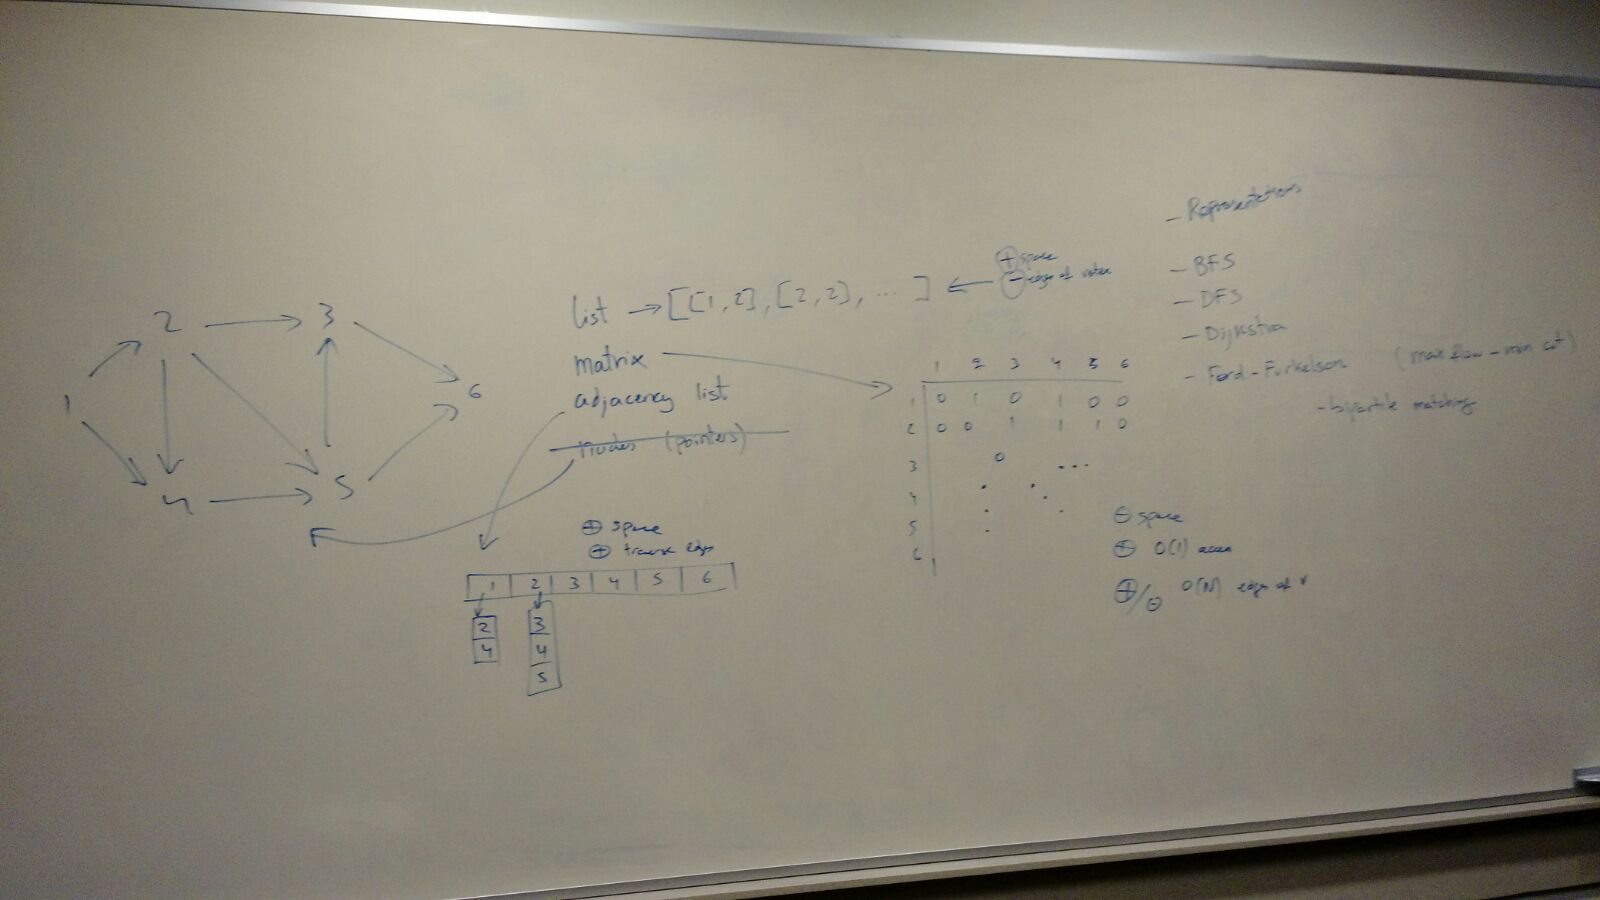 2 → 3
1
6
4 → 5
list → [[1,2],[2,2], ... ] ←
⊕ space
⊖ edges of vertex
matrix
adjacency list
nodes (pointers)
⊕ space
⊕ traverse edges
1 2 3 4 5 6
2 3
4 4
5
1 2 3 4 5 6
1 0 1 0 1 0 0
2 0 0 1 1 1 0
3 0 ...
4
5
6
⊖ space
⊕ O(1) access
⊕/⊖ O(N) edges of v
- Representations
- BFS
- DFS
- Dijkstra
- Ford-Furkelson (max flow - min cut)
- bipartite matching